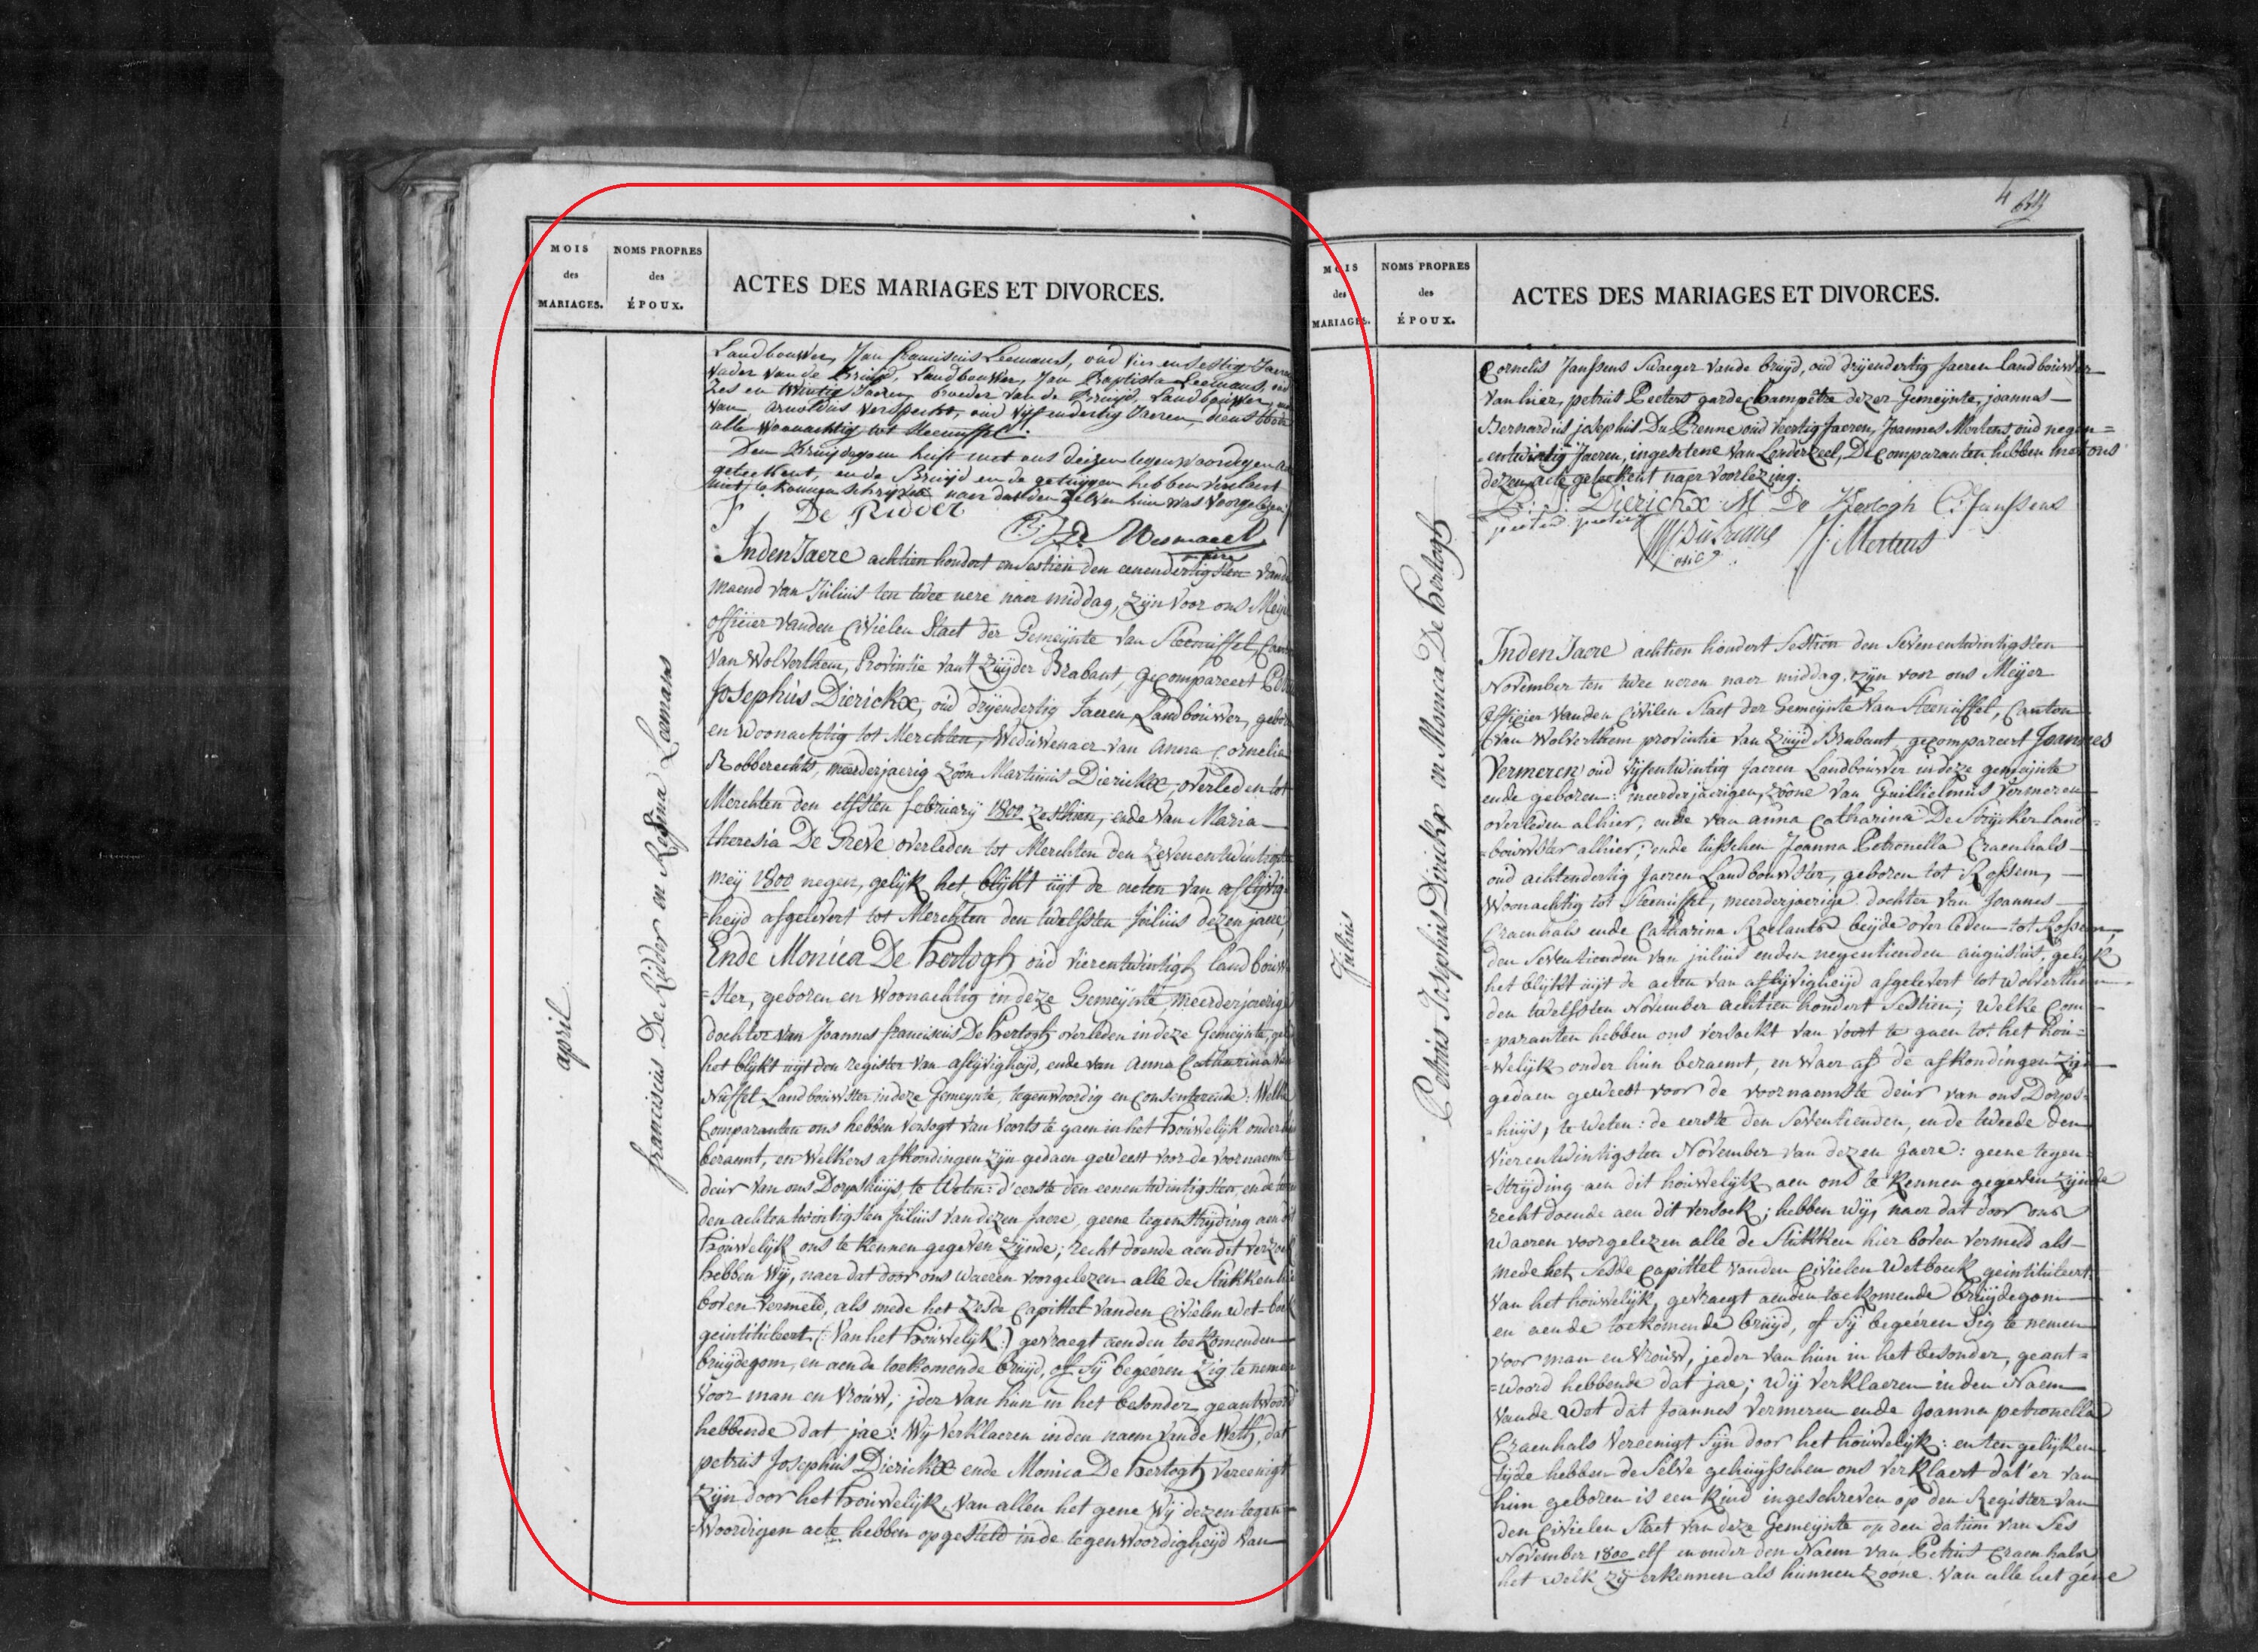 MOIS
des
MARIAGES.
NOMS PROPRES
des
ÉPOUX.
ACTES DES MARIAGES ET DIVORCES.
april.
franciscus De Ridder en Regina Leemans
Landbouwer, Jan franciscus Leemans, oud vier en sestig Jaeren
Vader van de Bruijd, Landbouwer, Jan Baptista Leemans, oud
Zes en twintig Jaeren, broeder van de Bruijd, Landbouwer, en
van Arnoldus Verspecht, oud vijf en dertig Jaeren, dienstbode
alle woonachtig tot Steenuffel.
Den Bruijdegom heeft met ons deizen tegenwoordigen act
geteekent, en de Bruijd en de getuijgen hebben verclaert
niet te konnen schrijven naer dat den zelven hun was voorgelezen
De Ridder
Mosmaeel
Inden Jaere achtien hondert en sestien den eenendertigsten vande
maend van Julius ten twee uere naer middag, zijn voor ons Meijer
officier vanden Civielen Staet der Gemeijnte van Steenuffel, Canton
van Wolverthem, Provintie van't Zuijder Brabant, gecompareert Petrus
Josephus Dierickx, oud drijendertig Jaeren, Landbouwer, geboren
en woonachtig tot Merchten, Weduwenaer van Anna Cornelia
Robberechts, meerderjaerig zoon Martinus Dierickx, overleden tot
Merchten den elfsten february 1800 zesthien, ende van Maria
theresia De Greve overleden tot Merchten den zevenentwintigsten
meij 1800 negen, gelijk het blijkt uijt de acten van aflijvig
=heijd afgelevert tot Merchten den twelfsten Julius dezen jaere,
Ende Monica De hertogh oud vierentwintigh landbouw
=ster, geboren en woonachtig in deze Gemeijnte, meerderjaerige
dochter van Joannes franciscus De hertogh overleden in deze Gemeijnte, gelijk
het blijkt uijt den register van aflijvigheijd, ende van Anna Catharina van
Nuffel Landbouwster in deze Gemeijnte, tegenwoordig en consenterende: Welke
Comparanten ons hebben versogt van voorts te gaen in het houwelijk onder hun
beraemt, en welkers afkondingen zijn gedaen geweest voor de voornaemste
deur van ons Dorpshuijs, te weten: d'eerste den eenentwintigsten, en de tweede
den achtentwintigsten Julius van dezen Jaere, geene tegenstrijding aen dit
houwelijk ons te kennen gegeven zijnde; recht doende aen dit verzoek
hebben wij, naer dat door ons waeren voorgelezen alle de stukken hier
boven vermeld, als mede het zesde Capittel vanden Civielen wet=boek
geintituleert (: van het houwelijk:) gevraegt aenden toekomenden
bruijdegom, en aende toekomende bruijd, of sij begeéren zig te nemen
voor man en vrouw; jder van hun in het besonder geantwoord
hebbende dat jae: Wij verklaeren inden naem vande Weth, dat
petrus Josephus Dierickx ende Monica De hertogh vereenigt
zijn door het houwelijk, van allen het gene wij dezen tegen=
=woordigen acte hebben opgesteld inde tegenwoordigheijd van
4
MOIS
des
MARIAGES.
NOMS PROPRES
des
ÉPOUX.
ACTES DES MARIAGES ET DIVORCES.
Julius
Petrus Josephus Dirickx en Monica De hertogh
Cornelis Janssens Swaeger vande bruijd, oud drijendertig Jaeren landbouwer
van hier, petrus Peeters garde champêtre dezer Gemeijnte, joannes
Bernardus josephus Du Prenne oud veertig Jaeren, Joannes Mertens oud negen=
=entwintig Jaeren, ingesetene van Londerzeel, De comparanten hebben met ons
dezen acte geteekent naer voorlezing.
P. J. Dierickx M. De Hertogh C. Janssens
peeter peeters
J. Mertens
Inden Jaere achtien hondert sestien den sevenentwintigsten
November ten twee ueren naer middag, zijn voor ons Meijer
officier vanden Civilen Staet der Gemeijnte van Steenuffel, Canton
van Wolverthem provintie van Zuijd Brabant gecompareert Joannes
Vermeren oud vijfentwintig Jaeren Landbouwer in deze gemeijnte
ende geboren: meerderjaerigen, zoone van Guillielmus Vermeren
overleden alhier, ende van anna Catharina De Strijcker land=
=bouwster alhier; ende tusschen Joanna Petronella Craenhals
oud achtendertig Jaeren Landbouwster, geboren tot Rossem,
Woonachtig tot Steenuffel, meerderjaerige dochter van Joannes
Craenhals ende Catharina Roelants beijde overleden tot Rossem,
den seventienden van julius enden negentienden augustus, gelijk
het blijkt uijt de acten van aflijvigheijd afgelevert tot wolverthem
den twelfsten November achtien hondert sestien; welke Com=
=paranten hebben ons versockt van voort te gaen tot het hou=
=welijk onder hun beraemt, en waer af de afkondingen zijn
gedaen geweest voor de voornaemste deur van ons Dorps=
=huijs, te weten: de eerste den seventienden, ende tweede den
vierentwintigsten November van dezen Jaere: geene tegen=
=strijding aen dit houwelijk aen ons te kennen gegeven zijnde
recht doende aen dit versoek; hebben wij, naer dat door ons
waeren voorgelezen alle de stukken hier boven vermeld als
mede het sesde Capittel vanden Civielen Wetboek geintituleert
van het houwelijk, gevraegt aenden toekomende bruijdegom
en aende toekomende bruijd, of sij begeéren sig te nemen
voor man en vrouw, jeder van hun in het besonder, geant=
=woord hebbende dat jae; wij verklaeren in den Naem
vande Wet dat Joannes Vermeren ende Joanna petronella
Craenhals vereenigt sijn door het houwelijk: en ten gelijken
tijde hebben de selve gehuijsschen ons verklaert dat'er van
hun geboren is een kind ingeschreven op den Register van
den Civielen Staet van deze Gemeijnte op den datum van ses
November 1800 elf en onder den Naem van Petrus Craenhals
het welk zij erkennen als hunnen zoone. van alle het géne